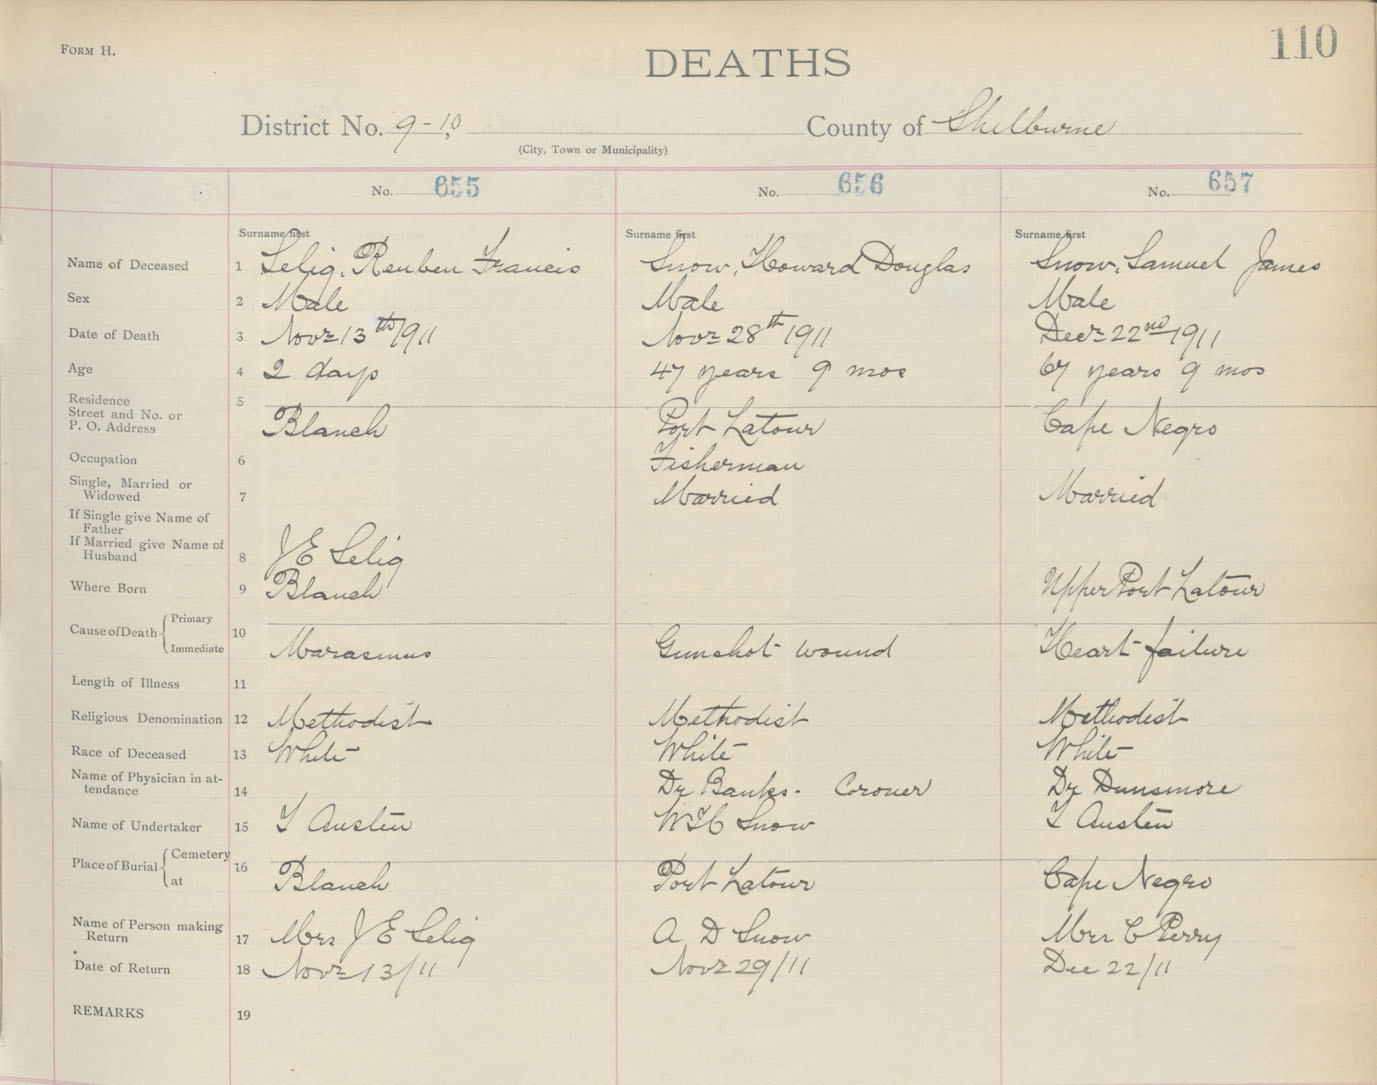 FORM H.
110
DEATHS
District No. 9-10 County of Shelburne
(City, Town or Municipality)
No. 655 No. 656 No. 657
Surname first Surname first Surname first
Name of Deceased 1 Selig, Reuben Francis Snow, Howard Douglas Snow, Samuel James
Sex 2 Male Male Male
Date of Death 3 Novr 13th 1911 Novr 28th 1911 Decr 22nd 1911
Age 4 2 days 47 years 9 mos 67 years 9 mos
Residence 5
Street and No. or
P. O. Address Blanch Port Latour Cape Negro
Occupation 6 Fisherman
Single, Married or
Widowed 7 Married Married
If Single give Name of
Father
If Married give Name of
Husband 8 J E Selig
Where Born 9 Blanch Upper Port Latour
Cause of Death Primary
10
Immediate Marasmus Gunshot wound Heart failure
Length of Illness 11
Religious Denomination 12 Methodist Methodist Methodist
Race of Deceased 13 White White White
Name of Physician in at-
tendance 14 Dr Banks - Coroner Dr Dunsmore
Name of Undertaker 15 T Austen Snow T Austen
Place of Burial Cemetery
16
at Blanch Port Latour Cape Negro
Name of Person making
Return 17 Mrs J E Selig A D Snow Mrs C Perry
Date of Return 18 Novr 13/11 Novr 29/11 Dec 22/11
REMARKS 19